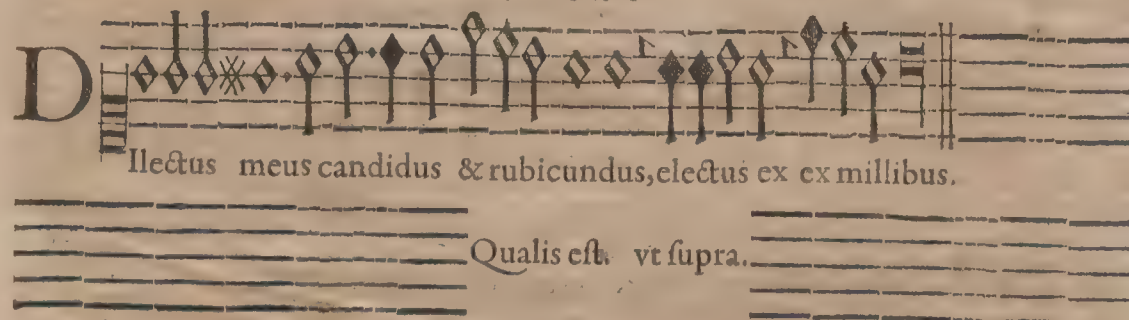 DIlectus meus candidus & rubicundus, electus ex ex millibus.
Qualis eſt. vt ſupra.